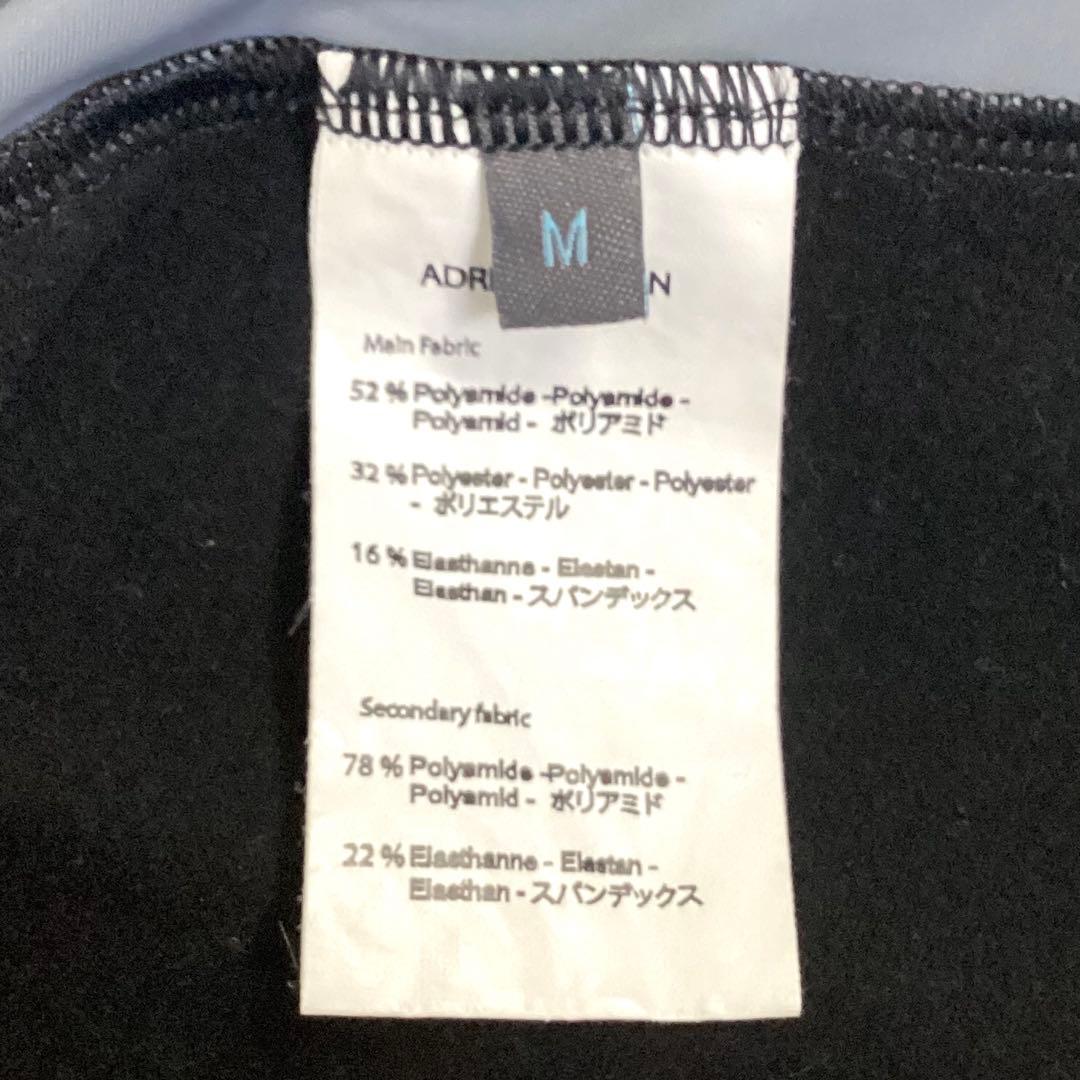 M
ADRI N
Main Fabric
52 % Polyamide -Polyamide -
Polyamid - ポリアミド
32 % Polyester - Polyester - Polyester
- ポリエステル
16 % Elasthanne - Elastan -
Elasthan - スパンデックス
Secondary fabric
78 % Polyamide -Polyamide -
Polyamid - ポリアミド
22 % Elasthanne - Elastan -
Elasthan - スパンデックス